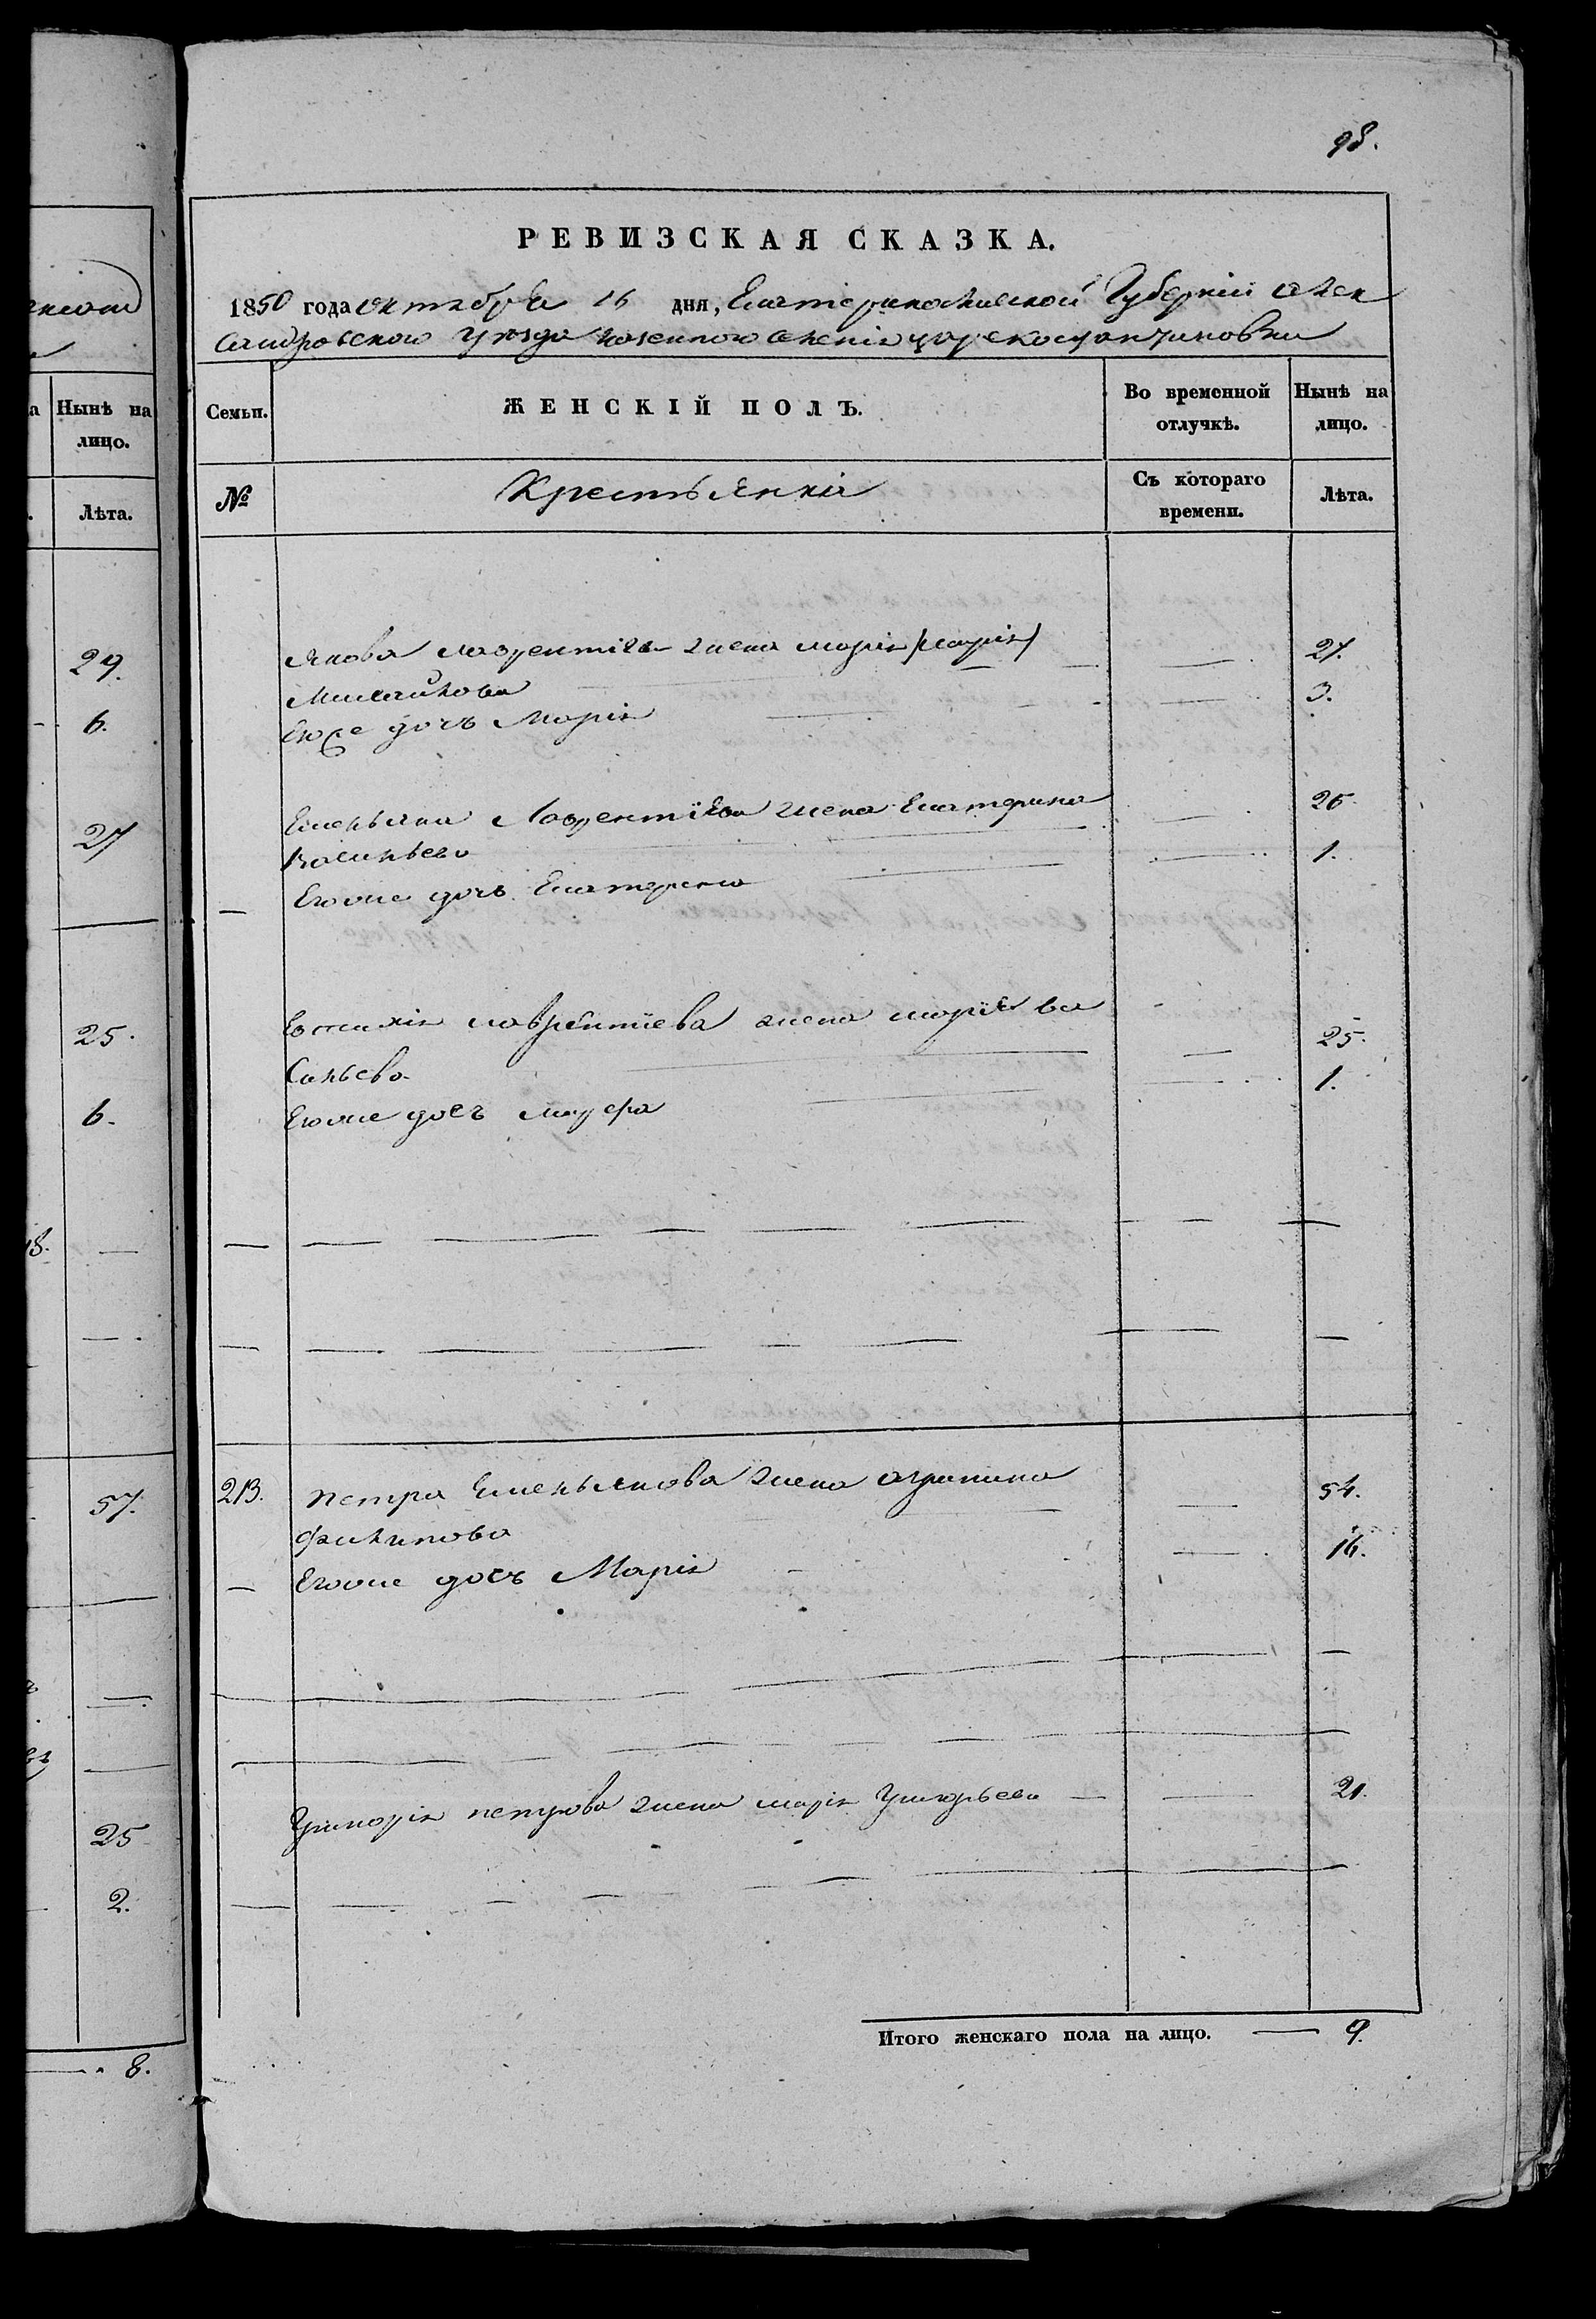 98.
РЕВИЗСКАЯ СКАЗКА.
1850 года октября 16 дня, Екатеринославской Губернии Алек
сандровского уезда казенного селения царекостантиновки
Семьи. ЖЕНСКІЙ ПОЛЪ. Во временной отлучкѣ. Нынѣ на лицо.
№ Крестьянки Съ котораго времени. Лѣта.
Якова Лаврентіева жена Марія 27.
Михайлова
Его же дочь Марія 3.
Емельяна Лаврентіева жена Екатерина 26.
Васильева
Его же дочь Екатерина 1.
Лаврентіева жена Марія Ва
сильева 25.
Его же дочь 1.
213. Петра Емельянова жена Агрипина 54.
Филипова
Его же дочь Марія 16.
Григорія Петрова жена Марія Григорьева 21.
Итого женскаго пола на лицо. 9.
Нынѣ на
лицо.
Лѣта.
29.
6.
27
25.
6.
57.
25
2.
8.